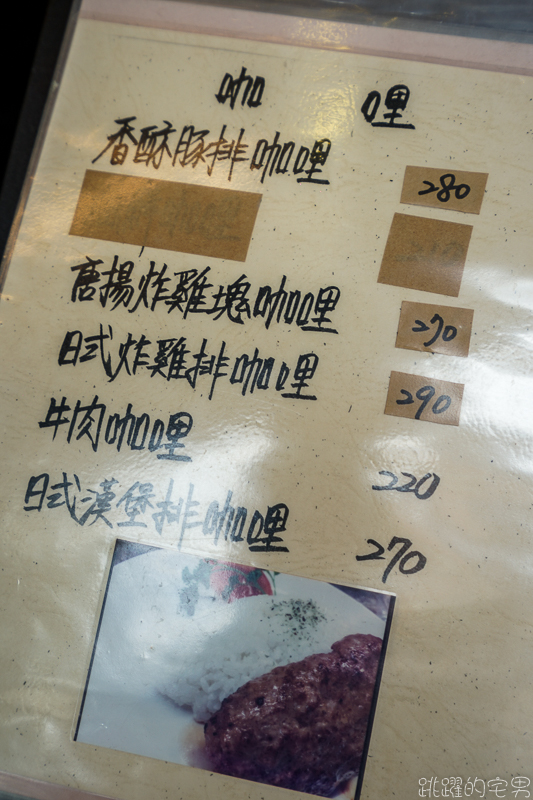 咖哩
香酥豚排咖哩 280
唐揚炸雞塊咖哩 270
日式炸雞排咖哩 290
牛肉咖哩 220
日式漢堡排咖哩 270
跳躍的宅男